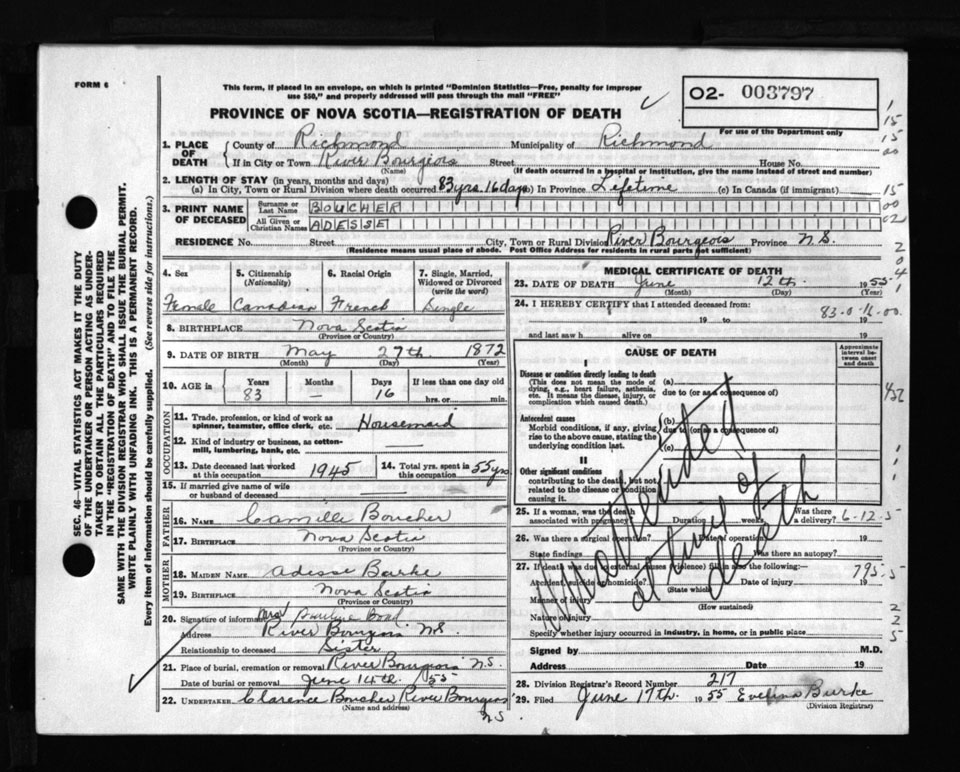 FORM 6
This form, if placed in an envelope, on which is printed "Dominion Statistics—Free, penalty for improper
use $50," and properly addressed will pass through the mail "FREE"
O2- 003797
PROVINCE OF NOVA SCOTIA—REGISTRATION OF DEATH
For use of the Department only
1. PLACE OF DEATH
County of Richmond Municipality of Richmond
If in City or Town River Bourgeois Street House No.
(Name) (If death occurred in a hospital or institution, give the name instead of street and number)
2. LENGTH OF STAY (in years, months and days)
(a) In City, Town or Rural Division where death occurred 83 yrs. 16 days (b) In Province Lifetime (c) In Canada (if immigrant)
3. PRINT NAME OF DECEASED
Surname or Last Name BOUCHER
All Given or Christian Names ADESSE
RESIDENCE No. Street City, Town or Rural Division River Bourgeois Province N.S.
(Residence means usual place of abode. Post Office Address for residents in rural parts not sufficient)
4. Sex 5. Citizenship (Nationality) 6. Racial Origin 7. Single, Married, Widowed or Divorced (write the word)
Female Canadian French Single
8. BIRTHPLACE Nova Scotia
(Province or Country)
9. DATE OF BIRTH May 27th. 1872
(Month) (Day) (Year)
10. AGE in Years Months Days If less than one day old
83 — 16 hrs. or min.
OCCUPATION
11. Trade, profession, or kind of work as spinner, teamster, office clerk, etc. Housemaid
12. Kind of industry or business, as cotton-mill, lumbering, bank, etc.
13. Date deceased last worked at this occupation 1945 14. Total yrs. spent in this occupation 55 yrs.
15. If married give name of wife or husband of deceased
FATHER
16. NAME Camille Boucher
17. BIRTHPLACE Nova Scotia
(Province or Country)
MOTHER
18. MAIDEN NAME Adesse Burke
19. BIRTHPLACE Nova Scotia
(Province or Country)
20. Signature of informant Mrs Pauline Boad
Address River Bourgeois N.S.
Relationship to deceased Sister
21. Place of burial, cremation or removal River Bourgeois N.S.
Date of burial or removal June 14th. /55
22. UNDERTAKER Clarence Boucher River Bourgeois N.S.
(Name and address)
MEDICAL CERTIFICATE OF DEATH
23. DATE OF DEATH June 12th. 1955
(Month) (Day) (Year)
24. I HEREBY CERTIFY that I attended deceased from:
83-0-16-00
19 to 19
and last saw h alive on 19
CAUSE OF DEATH
Approximate interval between onset and death
I
Disease or condition directly leading to death (a)
(This does not mean the mode of dying, e.g., heart failure, asthenia, etc. It means the disease, injury, or complication which caused death.)
due to (or as a consequence of)
Antecedent causes (b)
Morbid conditions, if any, giving rise to the above cause, stating the underlying condition last.
due to (or as a consequence of)
(c)
II
Other significant conditions
contributing to the death, but not related to the disease or condition causing it.
Unattended
at time of
death
25. If a woman, was the death associated with pregnancy? Duration weeks Was there a delivery? 6-12-5
26. Was there a surgical operation? Date of operation 19
State findings Was there an autopsy?
27. If death was due to external causes (violence) fill in also the following:— 795-5
Accident, suicide or homicide? Date of injury 19
(State which)
Manner of injury
(How sustained)
Nature of injury
Specify whether injury occurred in industry, in home, or in public place
Signed by M.D.
Address Date 19
28. Division Registrar's Record Number 217
29. Filed June 17th. 1955 Evelina Burke
(Division Registrar)
SEC. 46—VITAL STATISTICS ACT MAKES IT THE DUTY
OF THE UNDERTAKER OR PERSON ACTING AS UNDER-
TAKER TO OBTAIN ALL THE PARTICULARS REQUIRED
IN THE "REGISTRATION OF DEATH" AND TO FILE THE
SAME WITH THE DIVISION REGISTRAR WHO SHALL ISSUE THE BURIAL PERMIT.
WRITE PLAINLY WITH UNFADING INK. THIS IS A PERMANENT RECORD.
Every item of information should be carefully supplied. (See reverse side for instructions.)
1
15
15
00
15
00
02
2
0
4
1
432
1
1
1
2
2
5